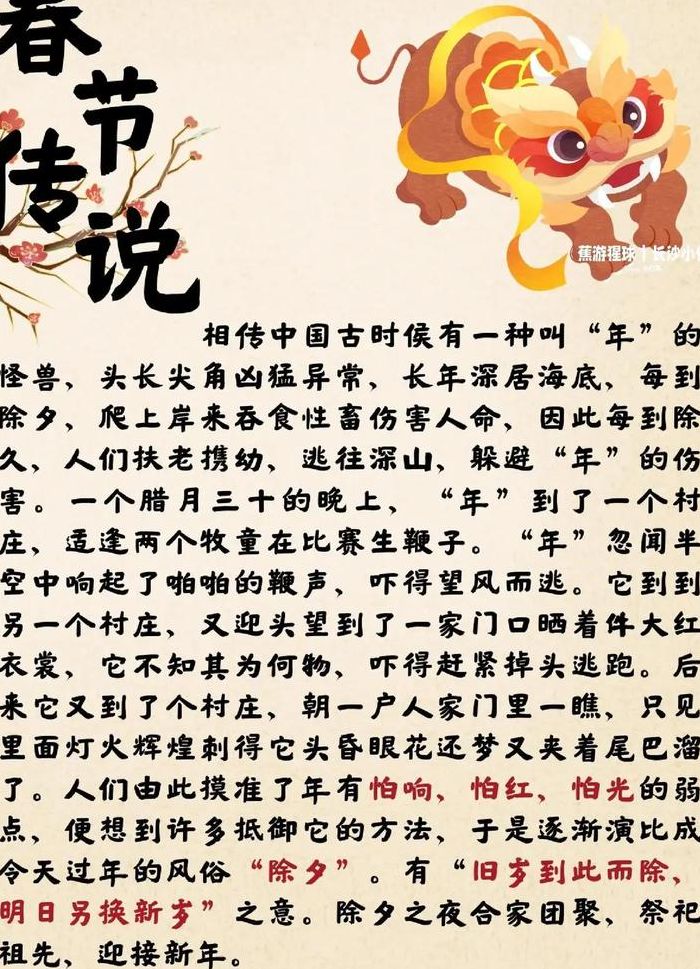 春节
传说
蕉游猩球十长沙小
相传中国古时侯有一种叫“年”的
怪兽，头长尖角凶猛异常，长年深居海底，每到
除夕，爬上岸来吞食性畜伤害人命，因此每到除
久，人们扶老携幼，逃往深山，躲避“年”的伤
害。一个腊月三十的晚上，“年”到了一个村
庄，适逢两个牧童在比赛生鞭子。“年”忽闻半
空中响起了啪啪的鞭声，吓得望风而逃。它到到
另一个村庄，又迎头望到了一家门口晒着件大红
衣裳，它不知其为何物，吓得赶紧掉头逃跑。后
来它又到了个村庄，朝一户人家门里一瞧，只见
里面灯火辉煌刺得它头昏眼花还梦又夹着尾巴溜
了。人们由此摸准了年有怕响，怕红，怕光的弱
点，便想到许多抵御它的方法，于是逐渐演比成
今天过年的风俗“除夕”。有“旧岁到此而除，
明日另换新岁”之意。除夕之夜合家团聚，祭祀
祖先，迎接新年。